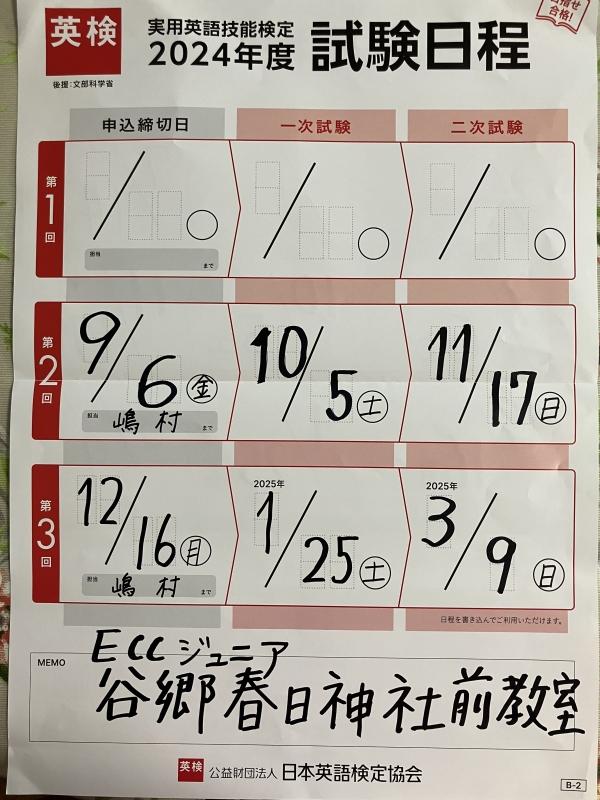 目指せ
合格!
英検
後援:文部科学省
実用英語技能検定
2024年度 試験日程
申込締切日 一次試験 二次試験
第1回
担当 まで
第2回
9/6 金 10/5 土 11/17 日
担当 嶋村 まで
第3回
2025年 2025年
12/16 月 1/25 土 3/9 日
担当 嶋村 まで
日程を書き込んでご利用いただけます。
MEMO
ECCジュニア
谷郷春日神社前教室
英検 公益財団法人 日本英語検定協会
B-2